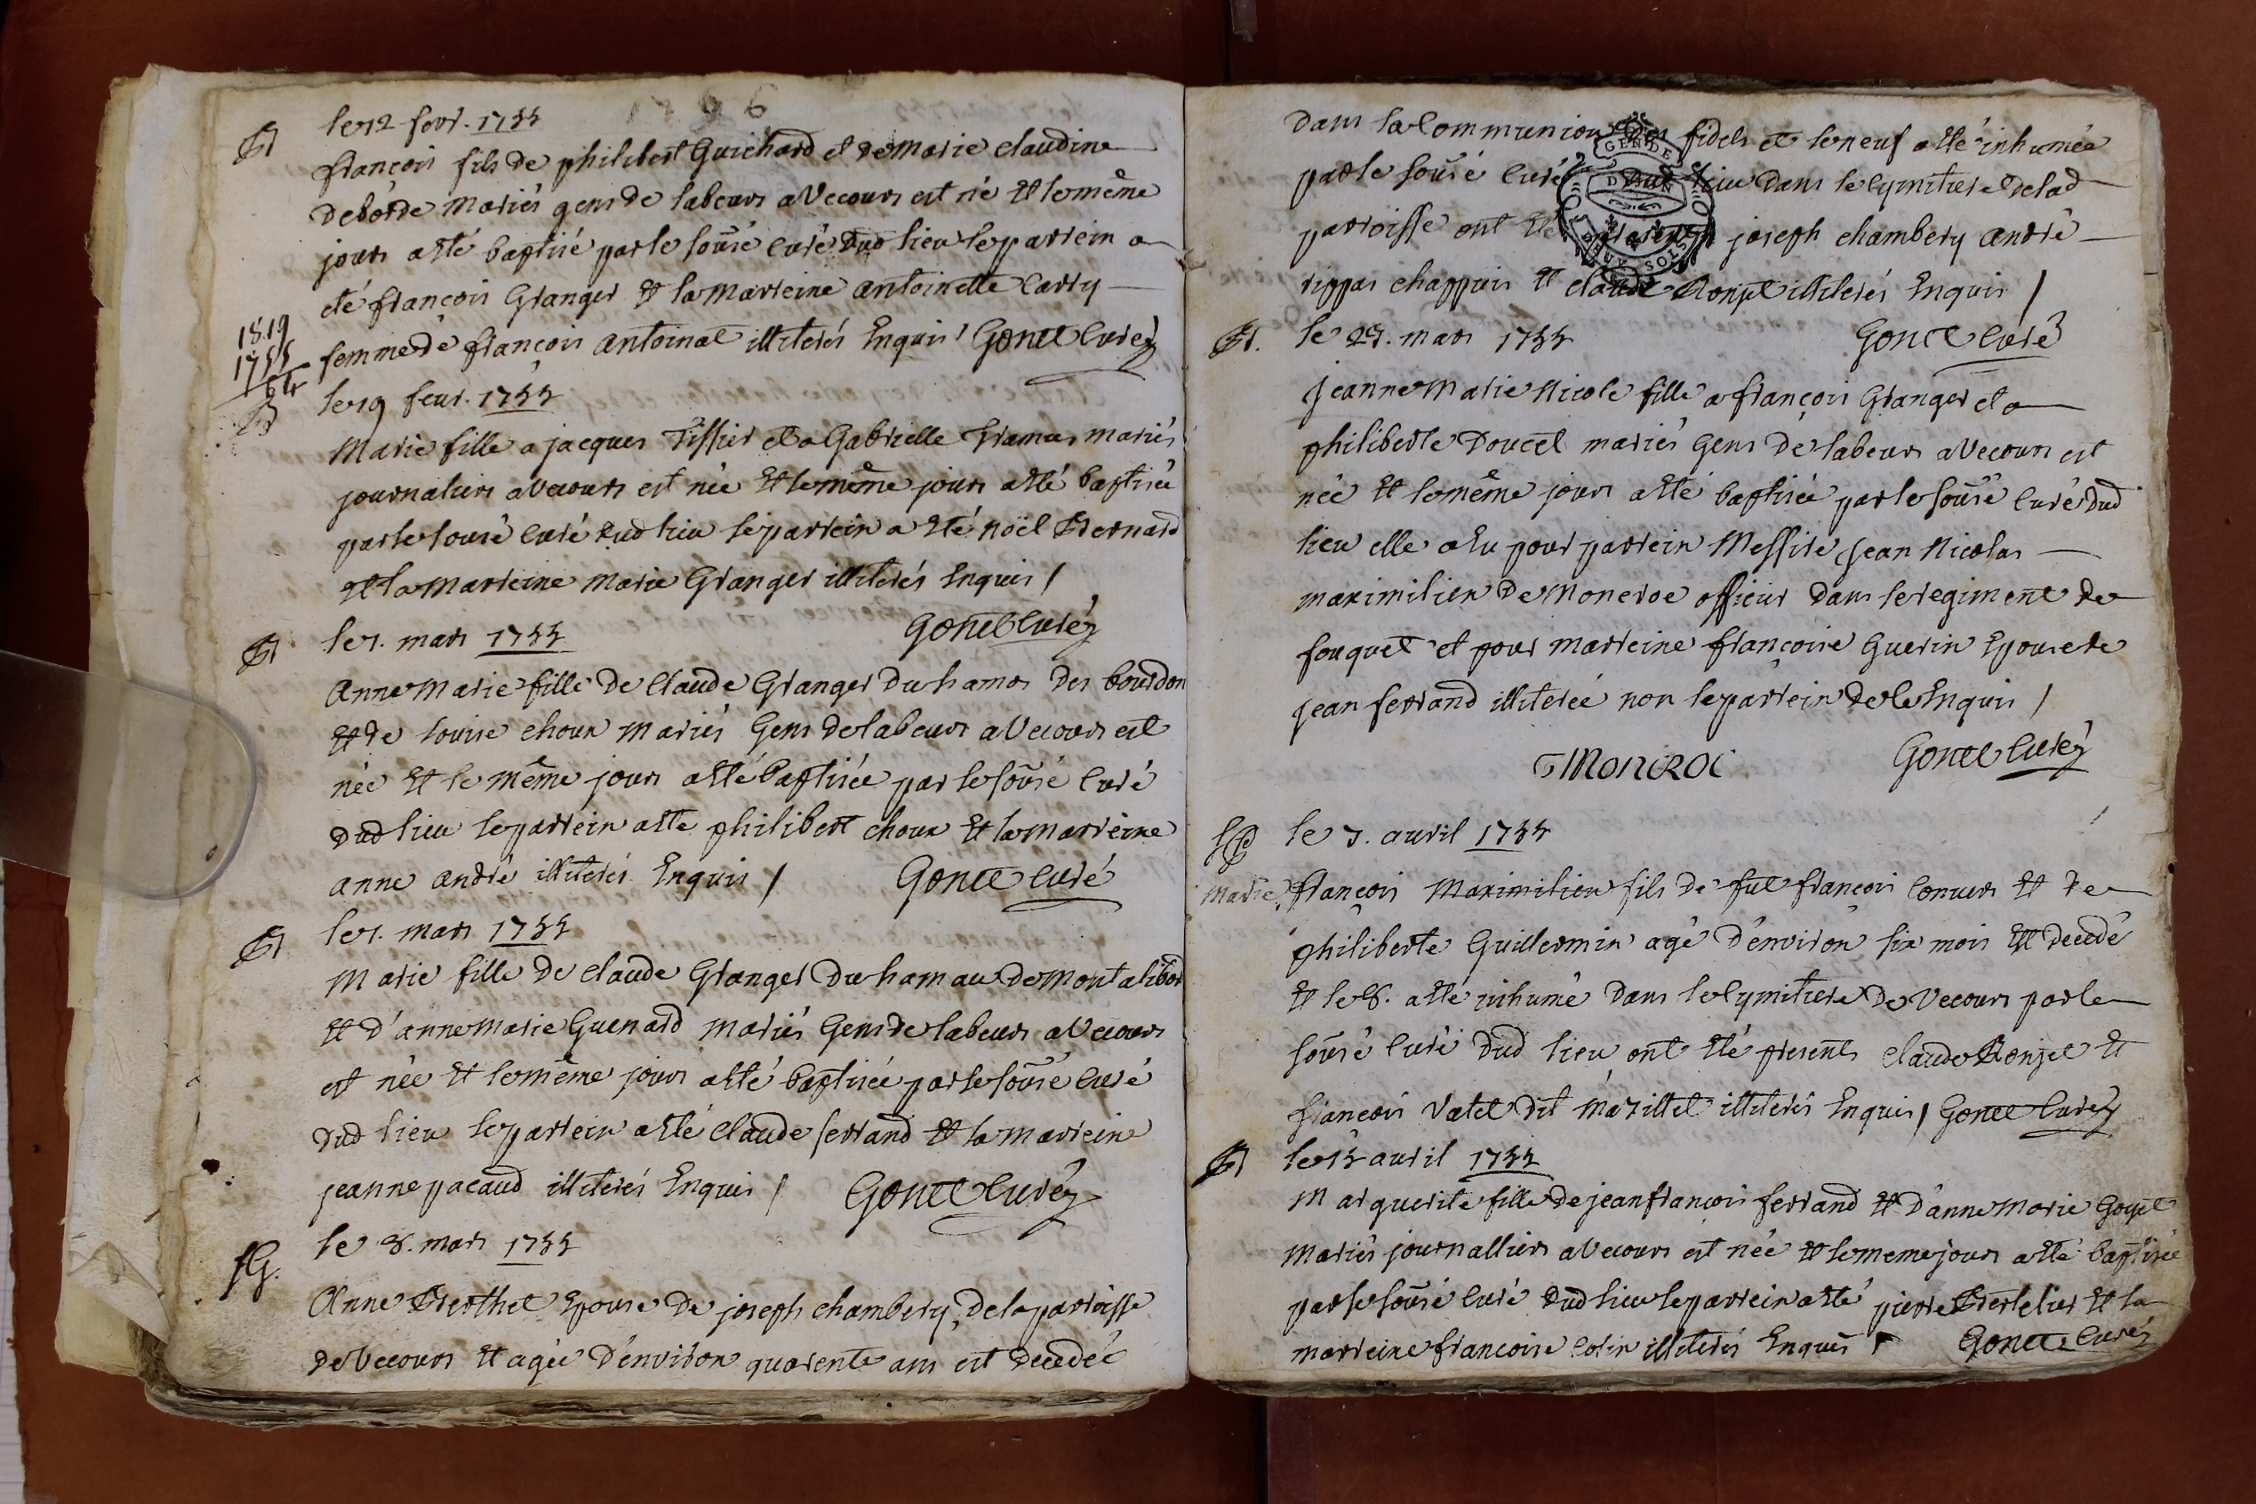 1756
Bt
le 12 fevr. 1755
françois fils de philibert Guichard et de marie claudine
deborde mariés gens de labeurs a Vecours est né et le même
jours a été baptisé par le sousé curé dud lieu le parrein a
eté françois Granger et la marreine antoinette Carry
femme de françois antoinat illiterés Enquis / Gonet curé
1819
1755
64
B
le 19 feur. 1755
Marie fille a jacques Tissier et a Gabrielle mariés
journaliers a Vecours est née et le même jours a été baptisée
par le sousé curé dud lieu le parrein a été noël Bernard
et la marreine marie Granger illiterés Enquis /
Gonet curé
Bt
le 1. mars 1755
anne marie fille de claude Granger du hamos des bourdon
et de louise choux mariés Gens de labeurs a Vecours est
née et le même jours a été baptisée par le sousé curé
dud lieu le parrein a été philibert choux et la marreine
anne andrè illiterés Enquis / Gonet curé
Bt
le 1. mars 1755
Marie fille de claude Granger du hamau de montalibord
et d'anne marie Guenard mariés Gens de labeurs a Vecours
est née et le même jours a été baptisée par le sousé curé
dud lieu le parrein a été claude ferrand et la marreine
jeanne pacaud illiterés Enquis / Gonet curé
le 8. mars 1755
Anne Berthet Epouse de joseph chambery de la parroisse
de Vecours et agée d'environ quarente ans est decedée
dans la Communion des fidels et le neuf a été inhumée
par le sousé curé dud lieu dans le cymitiere de lad
parroisse ont été presents joseph chambery andré
rippas chappuis et claude Ronjet illiterés Enquis /
Gonet curé
GEN DE
DEUX SOLS
Bt.
le 25. mars 1755
jeanne Marie Nicole fille a françois Granger et a
philiberte Doucet mariés Gens de labeurs a Vecours est
née et le même jours a été baptisée par le sousé curé dud
lieu elle a eu pour parrein Messire jean Nicolas
maximilien de Moncroc officier dans le regiment de
fouquet et pour marreine françoise Guerin Epouse de
jean ferrand illiterée non le parrein de ce Enquis /
Moncroc Gonet curé
le 7. avril 1755
Marie
françois Maximilien fils de fut françois convers et de
philiberte Guillermin agé d'environ six mois est decedé
et le 8. a été inhumé dans le cymitiere de Vecours par le
sousé curé dud lieu ont été presents claude Ronjet et
françois Vatel dit mazillet illiterés Enquis / Gonet curé
Bt
le 15 avril 1755
Marguerite fille de jean françois ferrand et d'anne marie Goyet
mariés journalliers a Vecours est née et le meme jours a été baptisée
par le sousé curé dud lieu le parrein a été pierre Bertelier et la
marreine francoise colin illiterés Enquis / Gonet curé